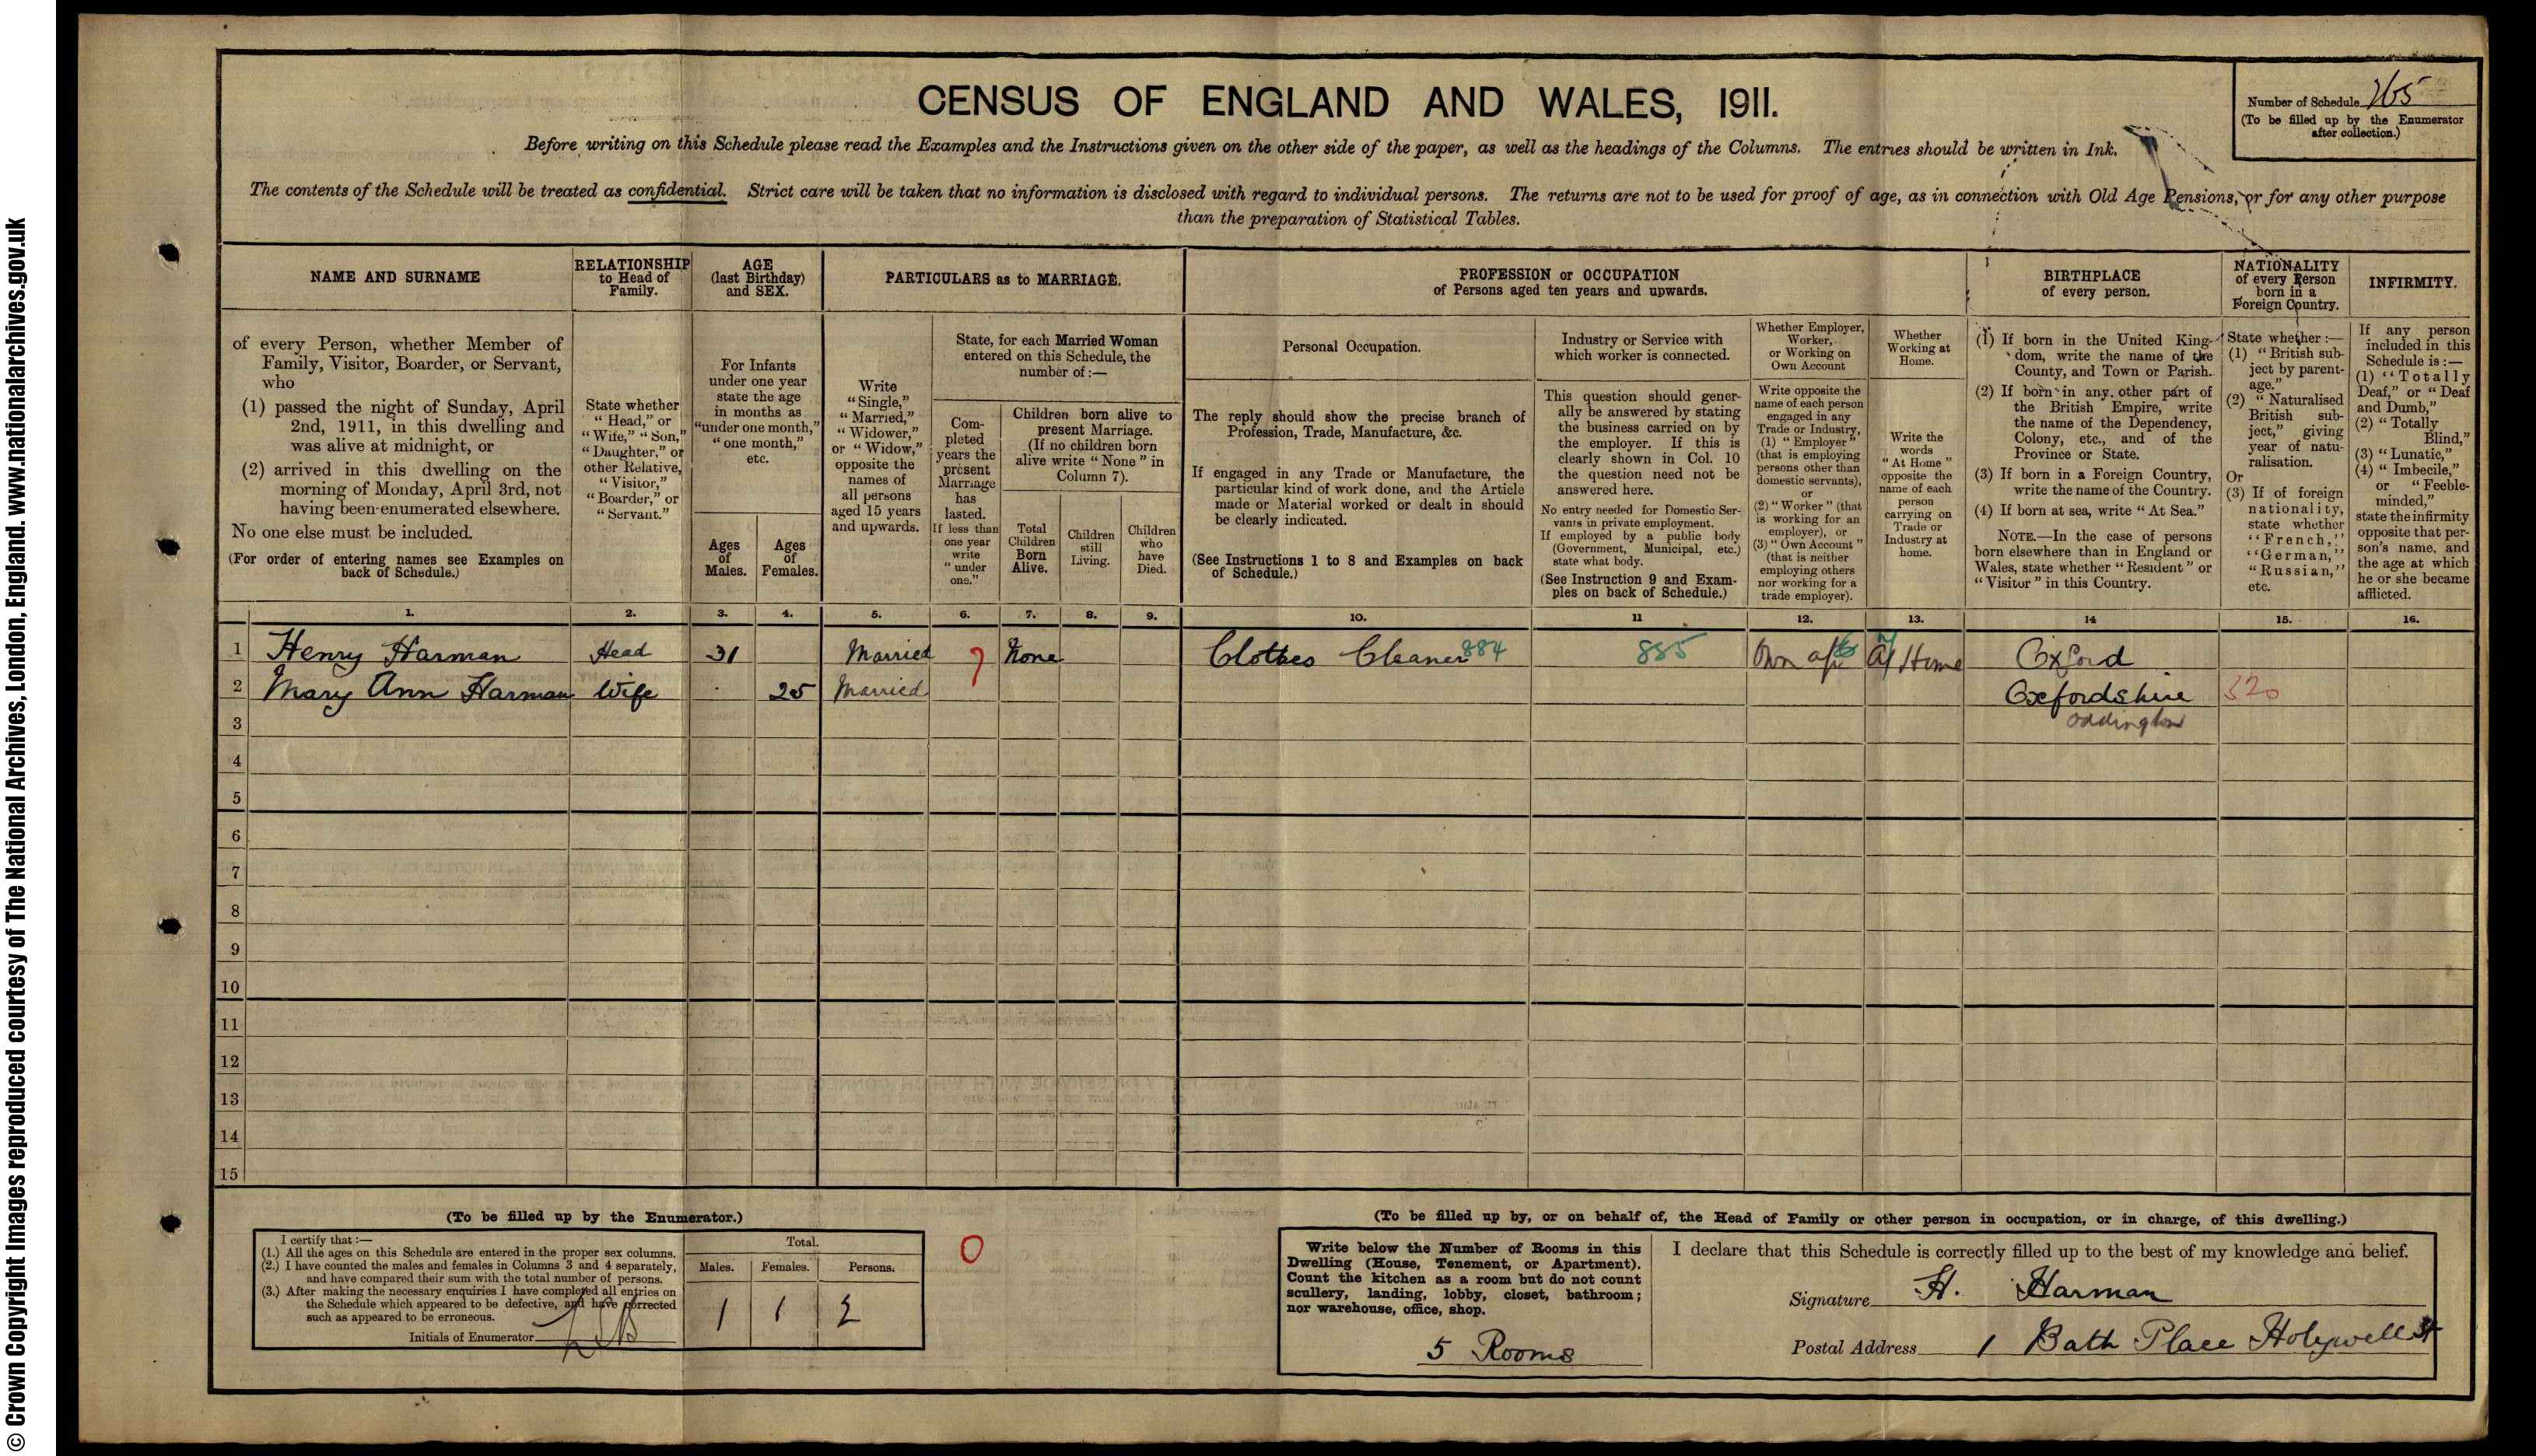 © Crown Copyright Images reproduced courtesy of The National Archives, London, England. www.nationalarchives.gov.uk
CENSUS OF ENGLAND AND WALES, 1911.
Number of Schedule 265
(To be filled up by the Enumerator
after collection.)
Before writing on this Schedule please read the Examples and the Instructions given on the other side of the paper, as well as the headings of the Columns. The entries should be written in Ink.
The contents of the Schedule will be treated as confidential. Strict care will be taken that no information is disclosed with regard to individual persons. The returns are not to be used for proof of age, as in connection with Old Age Pensions, or for any other purpose
than the preparation of Statistical Tables.
NAME AND SURNAME
of every Person, whether Member of
Family, Visitor, Boarder, or Servant,
who
(1) passed the night of Sunday, April
2nd, 1911, in this dwelling and
was alive at midnight, or
(2) arrived in this dwelling on the
morning of Monday, April 3rd, not
having been enumerated elsewhere.
No one else must be included.
(For order of entering names see Examples on
back of Schedule.)
RELATIONSHIP
to Head of
Family.
State whether
"Head," or
"Wife," "Son,"
"Daughter," or
other Relative,
"Visitor,"
"Boarder," or
"Servant."
AGE
(last Birthday)
and SEX.
For Infants
under one year
state the age
in months as
"under one month,"
"one month,"
etc.
Ages
of
Males.
Ages
of
Females.
PARTICULARS as to MARRIAGE.
Write
"Single,"
"Married,"
"Widower,"
or "Widow,"
opposite the
names of
all persons
aged 15 years
and upwards.
State, for each Married Woman
entered on this Schedule, the
number of :—
Com-
pleted
years the
present
Marriage
has
lasted.
If less than
one year
write
"under
one."
Children born alive to
present Marriage.
(If no children born
alive write "None" in
Column 7).
Total
Children
Born
Alive.
Children
still
Living.
Children
who
have
Died.
PROFESSION or OCCUPATION
of Persons aged ten years and upwards.
Personal Occupation.
The reply should show the precise branch of
Profession, Trade, Manufacture, &c.
If engaged in any Trade or Manufacture, the
particular kind of work done, and the Article
made or Material worked or dealt in should
be clearly indicated.
(See Instructions 1 to 8 and Examples on back
of Schedule.)
Industry or Service with
which worker is connected.
This question should gener-
ally be answered by stating
the business carried on by
the employer. If this is
clearly shown in Col. 10
the question need not be
answered here.
No entry needed for Domestic Ser-
vants in private employment.
If employed by a public body
(Government, Municipal, etc.)
state what body.
(See Instruction 9 and Exam-
ples on back of Schedule.)
Whether Employer,
Worker,
or Working on
Own Account
Write opposite the
name of each person
engaged in any
Trade or Industry,
(1) "Employer"
(that is employing
persons other than
domestic servants),
or
(2) "Worker" (that
is working for an
employer), or
(3) "Own Account"
(that is neither
employing others
nor working for a
trade employer).
Whether
Working at
Home.
Write the
words
"At Home"
opposite the
name of each
person
carrying on
Trade or
Industry at
home.
BIRTHPLACE
of every person.
(1) If born in the United King-
dom, write the name of the
County, and Town or Parish.
(2) If born in any other part of
the British Empire, write
the name of the Dependency,
Colony, etc., and of the
Province or State.
(3) If born in a Foreign Country,
write the name of the Country.
(4) If born at sea, write "At Sea."
NOTE.—In the case of persons
born elsewhere than in England or
Wales, state whether "Resident" or
"Visitor" in this Country.
NATIONALITY
of every Person
born in a
Foreign Country.
State whether :—
(1) "British sub-
ject by parent-
age."
(2) "Naturalised
British sub-
ject," giving
year of natu-
ralisation.
Or
(3) If of foreign
nationality,
state whether
"French,"
"German,"
"Russian,"
etc.
INFIRMITY.
If any person
included in this
Schedule is :—
(1) "Totally
Deaf," or "Deaf
and Dumb,"
(2) "Totally
Blind,"
(3) "Lunatic,"
(4) "Imbecile,"
or "Feeble-
minded,"
state the infirmity
opposite that per-
son's name, and
the age at which
he or she became
afflicted.
1. 2. 3. 4. 5. 6. 7. 8. 9. 10. 11 12. 13. 14 15. 16.
1 Henry Harman Head 31 Married 7 None Clothes Cleaner 884 885 Own At Home Oxford
2 Mary Ann Harman Wife 25 Married Oxfordshire 520
3 Oddington
4
5
6
7
8
9
10
11
12
13
14
15
(To be filled up by the Enumerator.)
I certify that :—
(1.) All the ages on this Schedule are entered in the proper sex columns.
(2.) I have counted the males and females in Columns 3 and 4 separately,
and have compared their sum with the total number of persons.
(3.) After making the necessary enquiries I have completed all entries on
the Schedule which appeared to be defective, and have corrected
such as appeared to be erroneous.
Initials of Enumerator
Total.
Males. Females. Persons.
1 1 2
0
(To be filled up by, or on behalf of, the Head of Family or other person in occupation, or in charge, of this dwelling.)
Write below the Number of Rooms in this
Dwelling (House, Tenement, or Apartment).
Count the kitchen as a room but do not count
scullery, landing, lobby, closet, bathroom;
nor warehouse, office, shop.
5 Rooms
I declare that this Schedule is correctly filled up to the best of my knowledge and belief.
Signature H. Harman
Postal Address 1 Bath Place Holywell St